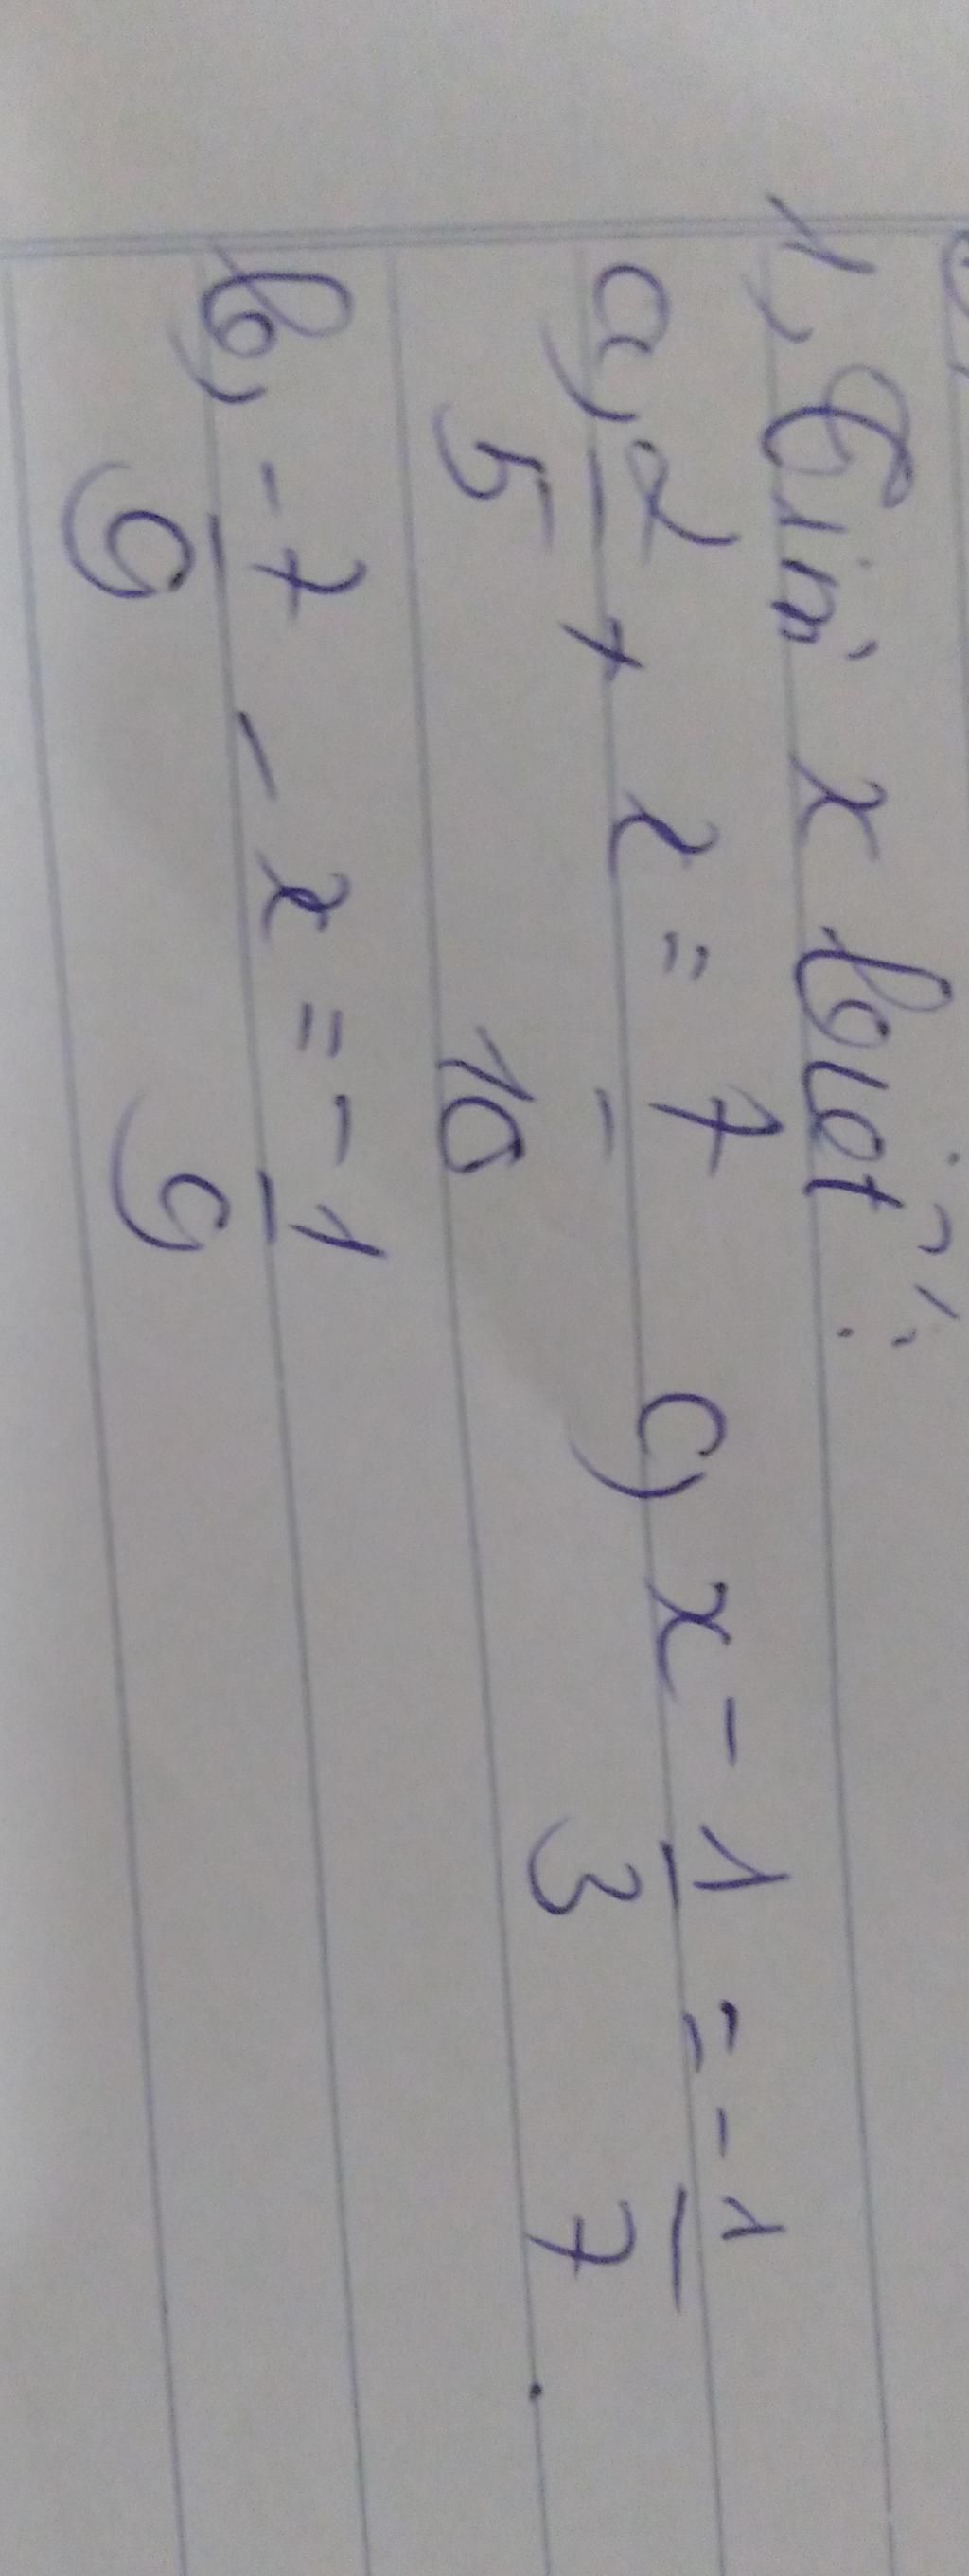 1, Tìm x biết:
a, 2/5 + x = 7/10 c, x - 1/3 = -1/7
b, -7/9 - x = -1/9